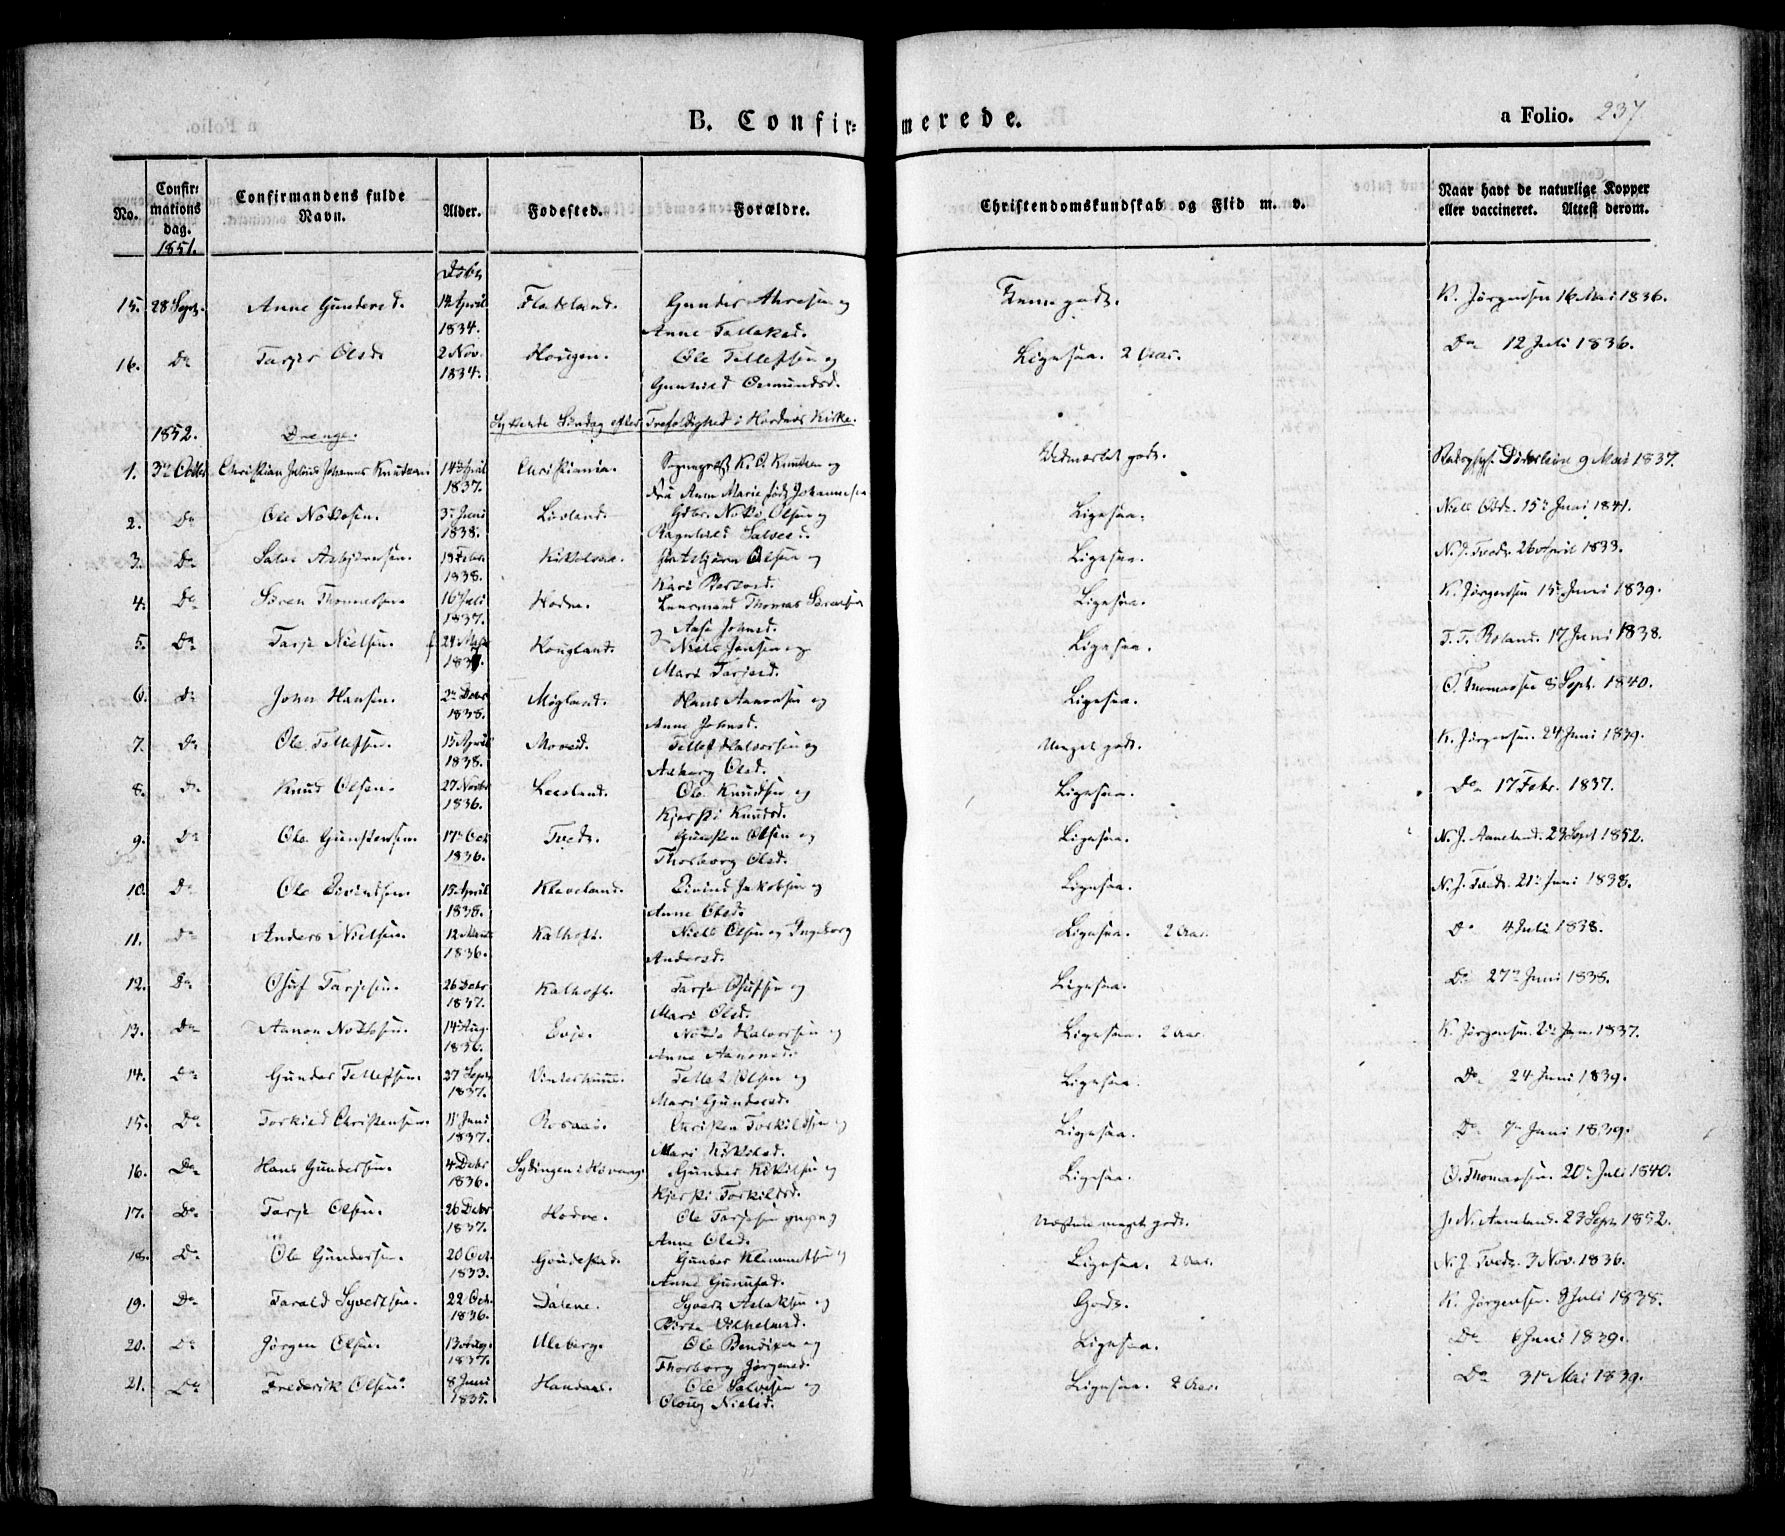 B. Confir=merede.
a Folio. 237
No.
Confir=
mations
dag.
1851.
Confirmandens fulde
Navn.
Alder.
Fødested.
Forældre.
Christendomskundskab og Flid m. v.
Naar havt de naturlige Kopper
eller vaccineret. Attest derom.
15. 28 Sept. Anne Gundersd. 14 April Flateland. Gunder Aresen og K. Jørgensen 16 Mai 1836.
1834. Anne Tellefsd.
16. Do Tarjer Olsd. 2 Nov. Hougen. Ole Tellefsen og Ligesaa. 2 Aar. Do 12 Juli 1836.
1834. Gunhild Osmundsd.
1852. Drenge. Syttende Søndag efter Trefoldighed i Hordnes Kirke.
1. 3die Octbr Christian Julius Johannes Knutzen. 14de April Christiania. Sognepræst K. O. Knutzen og Udmærket godt. 9 Mai 1837.
1837. Fru Anne Marie født Johannesen
2. Do Ole Nottosen. 3die Juni Løvland. Gdbr. Notto Olsen og Ligesaa. Niels Obdr. 15de Juni 1841.
1838. Ragnhild Salvesd.
3. Do Salve Asbjørnsen. 18 Febr. Kittelsaa. Asbjørn Olsen og Ligesaa. N. J. Tveds. 26 April 1833.
1838. Kari
4. Do Søren Thomassen. 16 Juli Hodne. Lensmand Thomas Sørensen Ligesaa. K. Jørgensen 15de Juni 1839.
1837. og Aase Johnsd.
5. Do Tarje Nielsen. 24 Kougland. Niels Jensen og Ligesaa. T. T. Roland. 17 Juni 1838.
1837. Mari Tarjesd.
6. Do John Hansen. 2de Decbr Møgland. Hans Aanonsen og Ligesaa. O. Thomassen 8 Sept. 1840.
1838. Anne Johnsd.
7. Do Ole Tellefsen. 15 April Moseid. Tellef Halvorsen og Meget godt. K. Jørgensen. 24 Juni 1839.
1838. Asborg Olsd.
8. Do Knud Olsen. 27 Novbr Leesland. Ole Knudsen og Ligesaa. Do 17 Febr. 1837.
1836. Kjersti Knudsd.
9. Do Ole Gunstensen. 17de Oct Tveds. Gunsten Olsen og Ligesaa. N. J. Aaneland. 23 Sept 1852.
1836. Thorborg Olsd.
10. Do Ole Eivindsen. 15 April Kleveland. Eivind Jakobsen og Ligesaa. N. J. Tveds. 21de Juni 1838.
1838. Anne Olsd.
11. Do Anders Nielsen. 12 Kalhoft. Niels Olsen og Ingeborg Ligesaa. 2 Aar. Do 4 Juli 1838.
1836. Andersd.
12. Do Osuf Tarjesen. 26 Decbr Kalhoft. Tarje Osufsen og Ligesaa. Do 27de Juni 1838.
1837. Mari Olsd.
13. Do Aanon Nottosen. 14 Aug. Evje. Notto Halvorsen og Ligesaa. 2 Aar. K. Jørgensen. 2de Jan. 1837.
1836. Anne Aanonsd.
14. Do Gunder Tellefsen. 27 Sept. Vintertuun. Tellef Olsen og Ligesaa. Do 24 Juni 1839.
1837. Mari Gundersd.
15. Do Torkild Christensen. 11 Juni Rosaas. Christen Torkildsen og Ligesaa. Do 7de Juni 1839.
1837. Mari Kittilsd.
16. Do Hans Gundersen. 4 Decbr Sydingen i Høvaag. Gunder Kittilsen og Ligesaa. O. Thomassen. 20de Juli 1840.
1836. Kjersti Torkildsd.
17. Do Tarje Olsen. 26 Decbr Hodne. Ole Tarjesen og Næsten meget godt. J. N. Aaneland. 23 Sept 1852.
1837. Anne Olsd.
18. Do Ole Gundersen. 20 Oct. Goudestad. Gunder Klemmetsen og Ligesaa. 2 Aar. N. J. Tveds. 3 Nov. 1836.
1833. Anne Gunufsd.
19. Do Tarald Syvertsen. 22 Oct. Dalene. Syvert Aslaksen og Godt. K. Jørgensen. 8 Juli 1838.
1836. Birte Vilhelmsd.
20. Do Jørgen Olsen. 13 Aug. Uleberg. Ole Bendixen og Ligesaa. Do 6 Juni 1839.
1837. Thorborg Jørgensd.
21. Do Frederik Olsen. 8 Juni Handaal. Ole Salvesen og Ligesaa. 2 Aar. Do 31te Mai 1839.
1835. Oloug Nielsd.